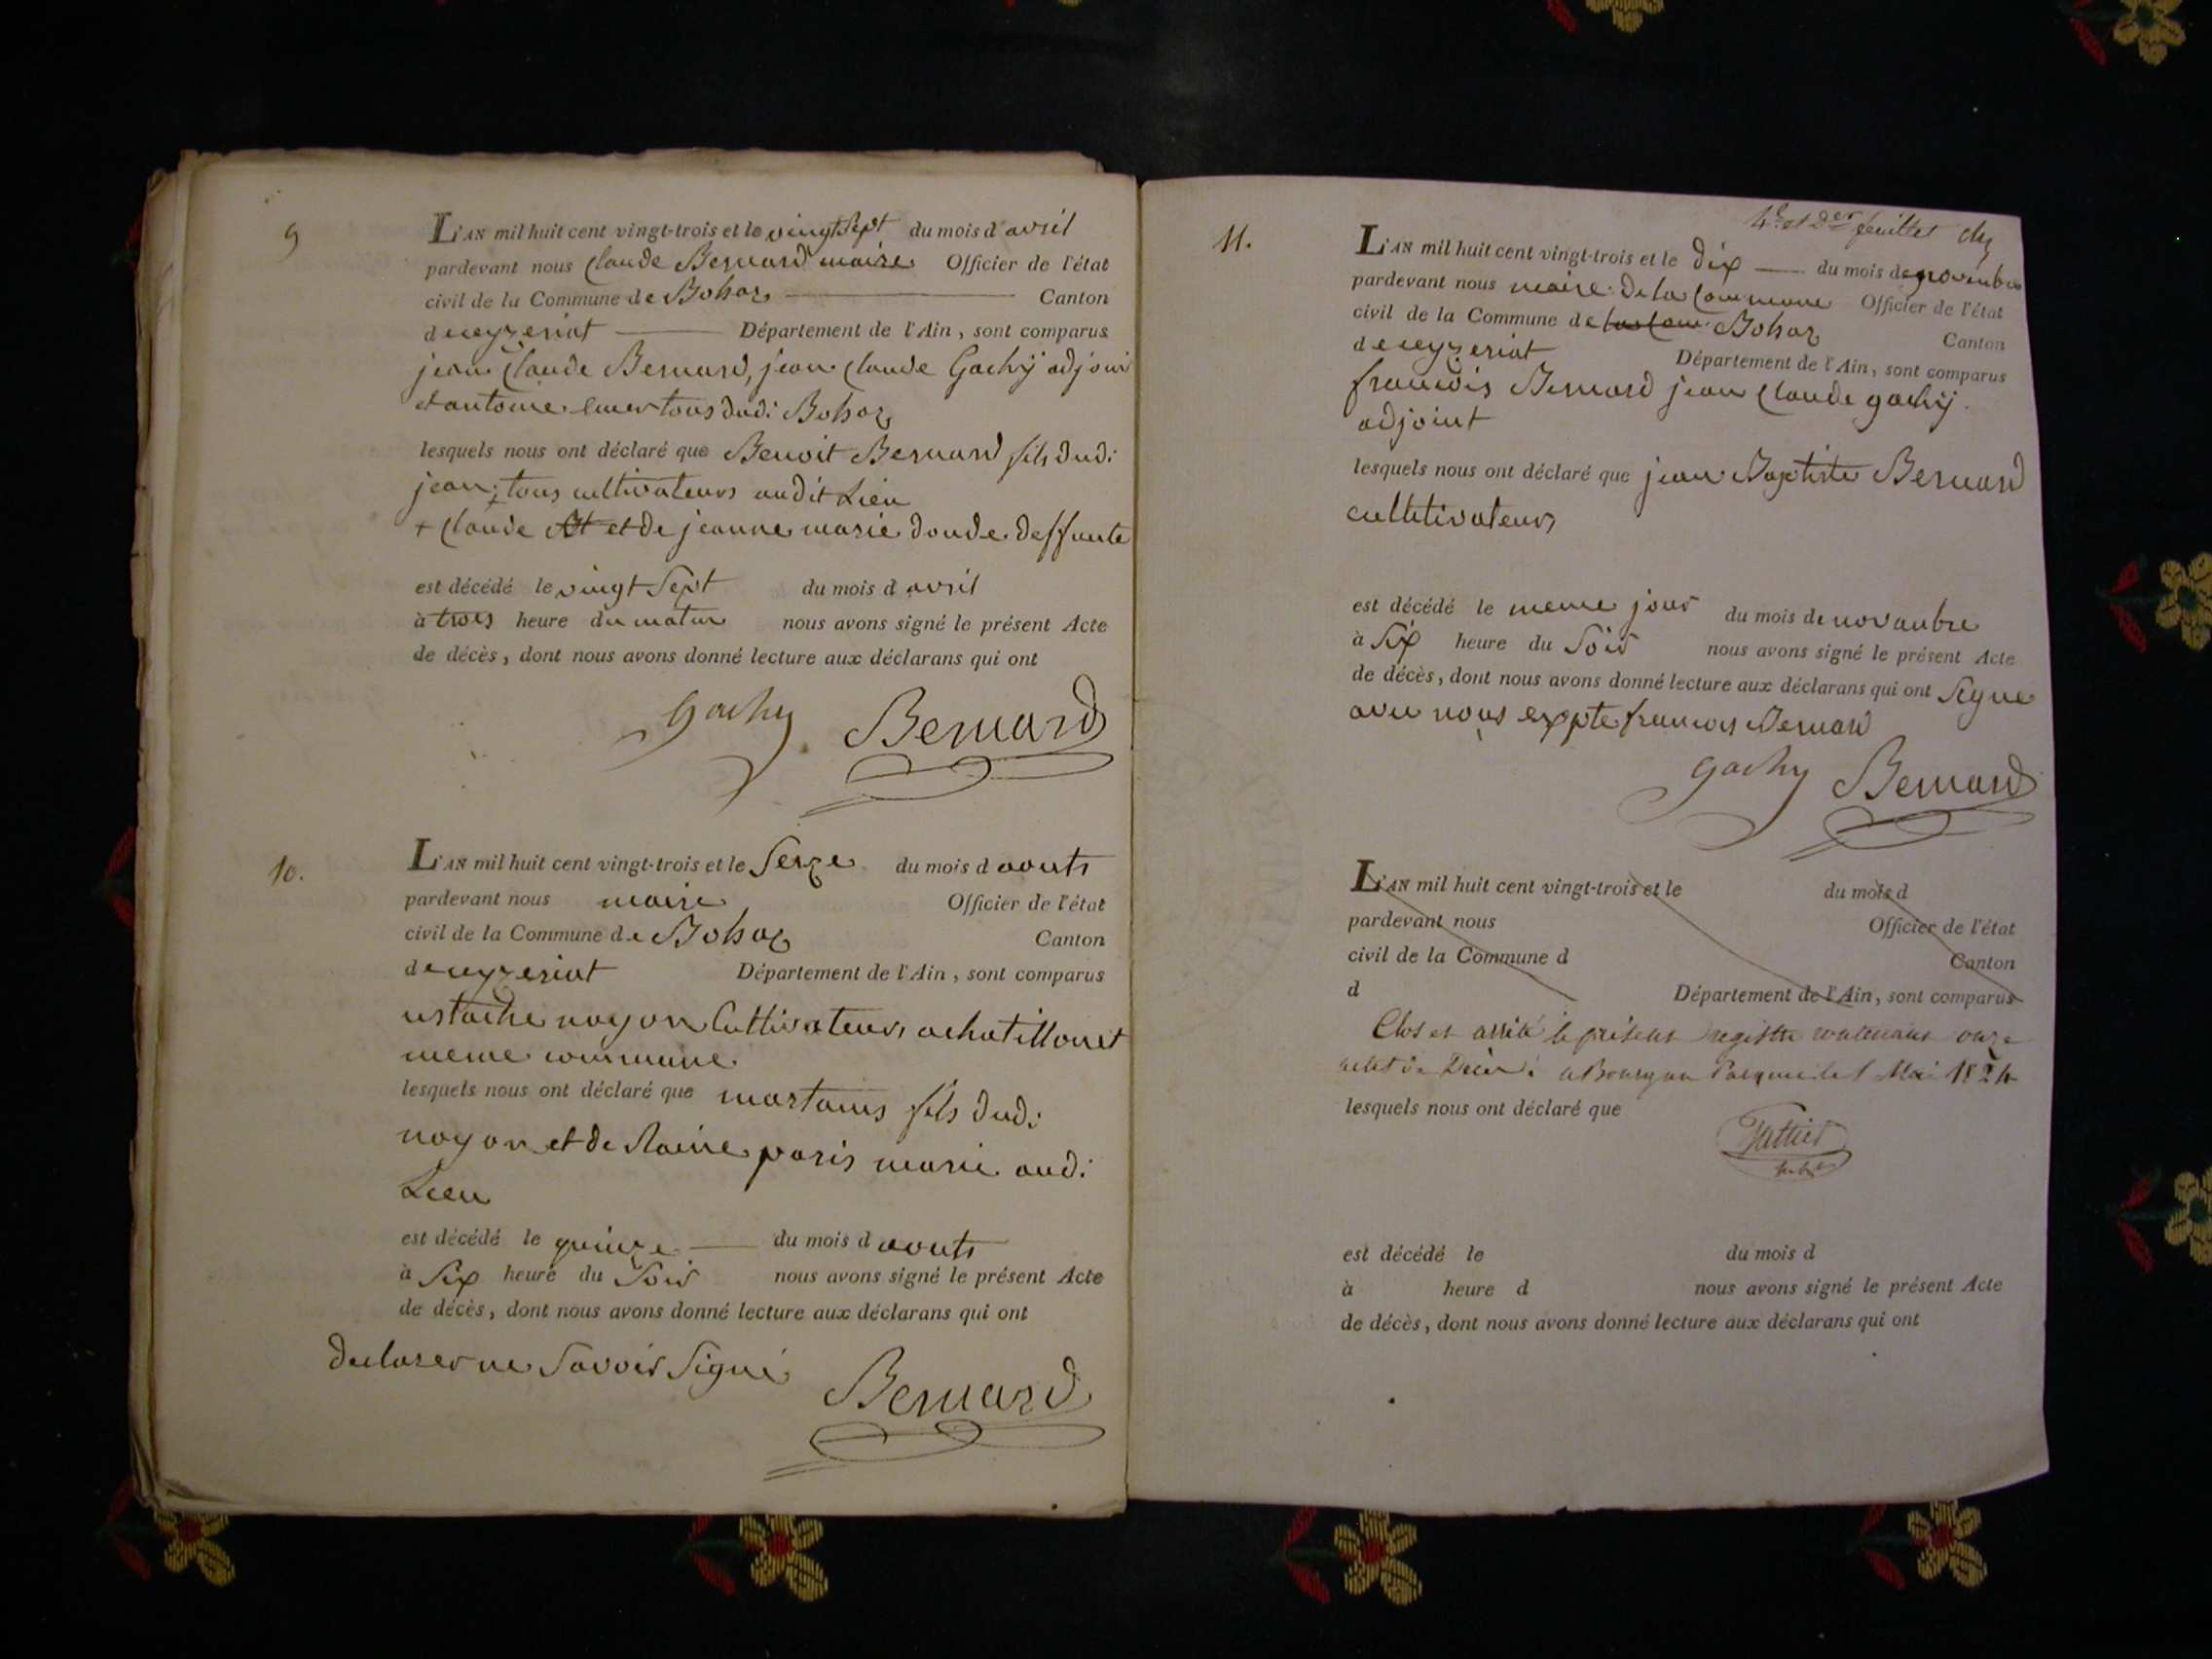 9
L'AN mil huit cent vingt-trois et le vingt Sept du mois d avril
pardevant nous Claude Bernard maire Officier de l'état
civil de la Commune de Bohaz Canton
de ceyzeriat Département de l'Ain, sont comparus
jean Claude Bernard, jean Claude Gachy adjoint
et antoine tous dudi Bohaz
lesquels nous ont déclaré que Benoit Bernard fils dudi
jean + tous cultivateurs audit Lieu
+ Claude et de jeanne marie donde deffunte
est décédé le vingt Sept du mois d avril
à trois heure du matin nous avons signé le présent Acte
de décès, dont nous avons donné lecture aux déclarans qui ont
Gachy Bernard
10.
L'AN mil huit cent vingt-trois et le Seize du mois d aouts
pardevant nous maire Officier de l'état
civil de la Commune de Bohaz Canton
de ceyzeriat Département de l'Ain, sont comparus
ustache noyon Cultivateurs achatillonet
meme commune
lesquels nous ont déclaré que martains fils dudi
noyon et de Raine paris marie audi
Lieu
est décédé le quinze du mois d aouts
à Six heure du Soir nous avons signé le présent Acte
de décès, dont nous avons donné lecture aux déclarans qui ont
declarer ne Savoir Signé
Bernard
4e et Der feuillet
11.
L'AN mil huit cent vingt-trois et le dix du mois de novembre
pardevant nous maire de la Commune Officier de l'état
civil de la Commune de Bohaz Canton
de ceyzeriat Département de l'Ain, sont comparus
francois Bernard jean Claude gachy
adjoint
lesquels nous ont déclaré que jean Baptiste Bernard
cultitivateurs
est décédé le meme jour du mois de novanbre
à Six heure du Soir nous avons signé le présent Acte
de décès, dont nous avons donné lecture aux déclarans qui ont Signe
avec nous expte francois Bernard
Gachy Bernard
L'AN mil huit cent vingt-trois et le du mois d
pardevant nous Officier de l'état
civil de la Commune d Canton
d Département de l'Ain, sont comparus
Clos et arrêté le présent registre contenant onze
actes de Décès à Bourg au Parquet le 1 Mai 1824
lesquels nous ont déclaré que
est décédé le du mois d
à heure d nous avons signé le présent Acte
de décès, dont nous avons donné lecture aux déclarans qui ont